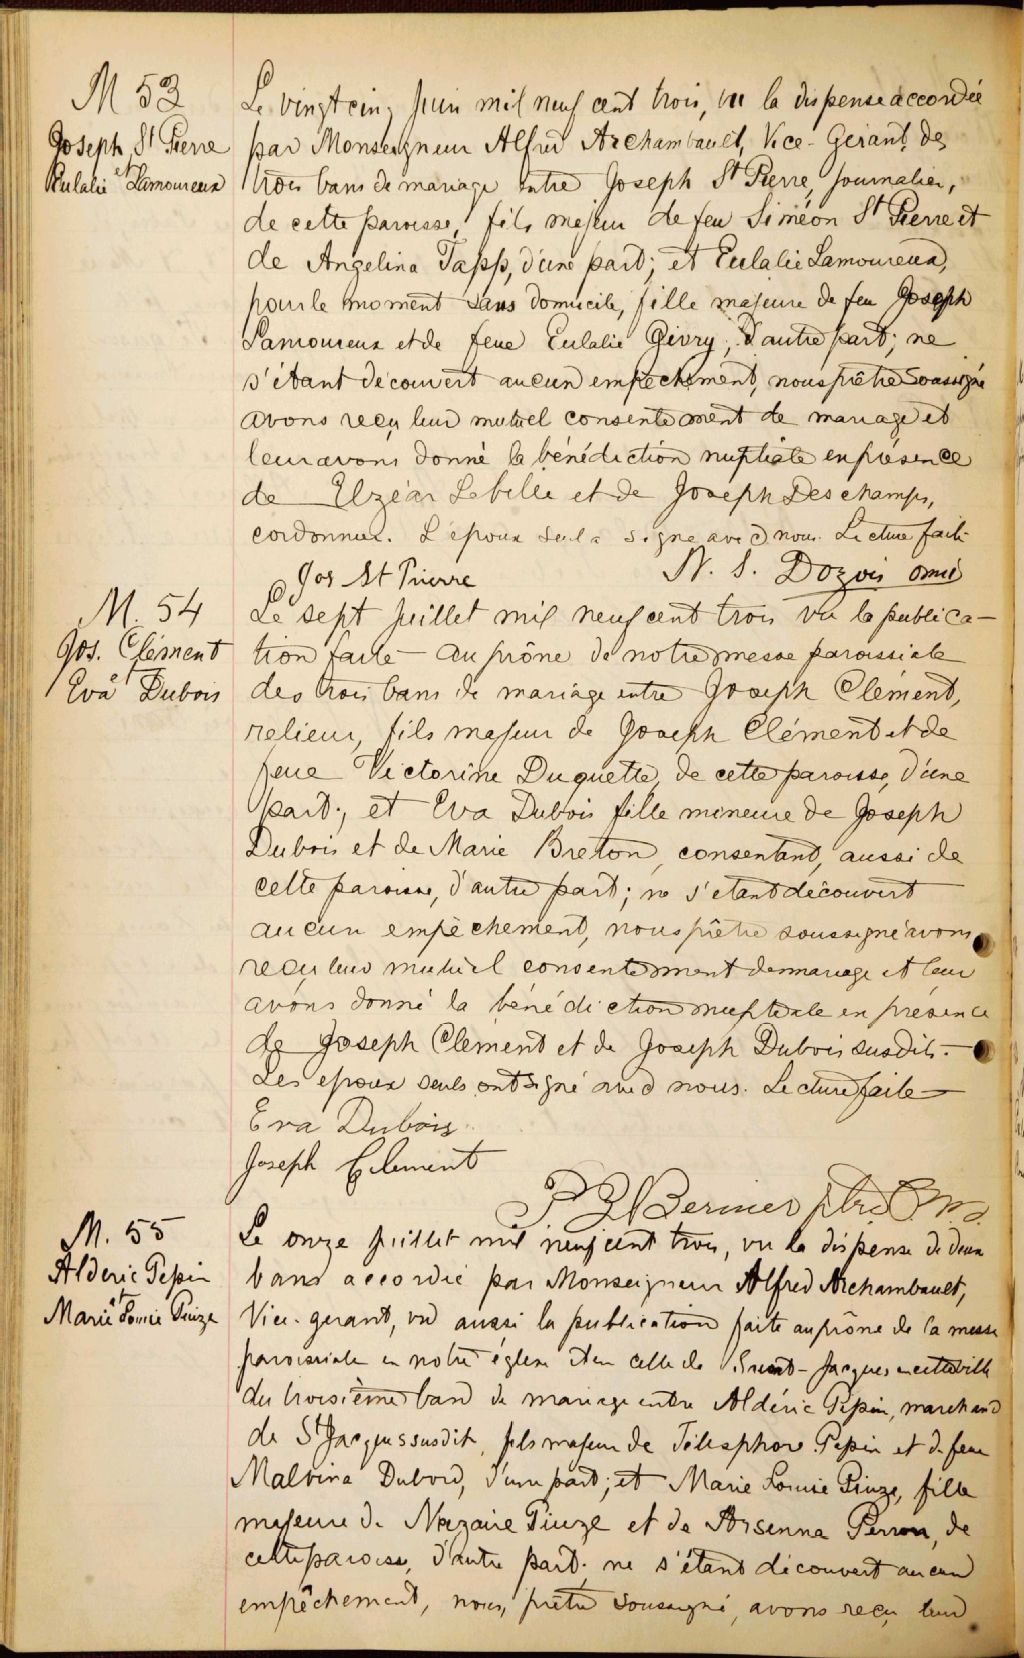 M 53
Joseph St Pierre
et
Eulalie Lamoureux
Le vingt cinq Juin mil neuf cent trois, vu la dispense accordée
par Monseigneur Alfred Archambault, Vice-Gérant, des
trois bans de mariage entre Joseph St Pierre, journalier,
de cette paroisse, fils majeur de feu Siméon St Pierre et
de Angelina Tapp, d'une part; et Eulalie Lamoureux,
pour le moment sans domicile, fille majeure de feu Joseph
Lamoureux et de feue Eulalie Givry, d'autre part; ne
s'étant découvert aucun empêchement, nous prêtre soussigné
avons reçu leur mutuel consentement de mariage et
leur avons donné la bénédiction nuptiale en présence
de Elzéar Lebelle et de Joseph Deschamps,
cordonnier. L'époux seul a signé avec nous. Lecture faite
Jos St Pierre
N. S. Dozois omi
M. 54
Jos. Clément
et
Eva Dubois
Le sept juillet mil neuf cent trois vu la publica-
tion faite au prône de notre messe paroissiale
des trois bans de mariage entre Joseph Clément,
relieur, fils majeur de Joseph Clément et de
feue Victorine Duquette, de cette paroisse, d'une
part; et Eva Dubois fille mineure de Joseph
Dubois et de Marie Breton, consentant, aussi de
cette paroisse, d'autre part; ne s'etant découvert
aucun empêchement, nous prêtre soussigné avons
reçu leur mutuel consentement de mariage et leur
avons donné la bénédiction nuptiale en présence
de Joseph Clément et de Joseph Dubois susdits.
Les epoux seuls ont signé avec nous. Lecture faite
Eva Dubois
Joseph Clement
P Z Bernier ptre
M. 55
Aldéric Pepin
et
Marie Louise Piuze
Le onze juillet mil neuf cent trois, vu la dispense de deux
bans accordée par Monseigneur Alfred Archambault,
Vice-gérant, vu aussi la publication faite au prône de la messe
paroissiale en notre église et en celle de Saint-Jacques en cette ville
du troisième ban de mariage entre Aldéric Pepin, marchand
de St Jacques susdit, fils majeur de Télesphore Pepin et de feue
Malvina Dubord, d'une part; et Marie Louise Piuze, fille
majeure de Nazaire Piuze et de Arsenna Perron, de
cette paroisse, d'autre part; ne s'étant découvert aucun
empêchement, nous, prêtre soussigné, avons reçu leur